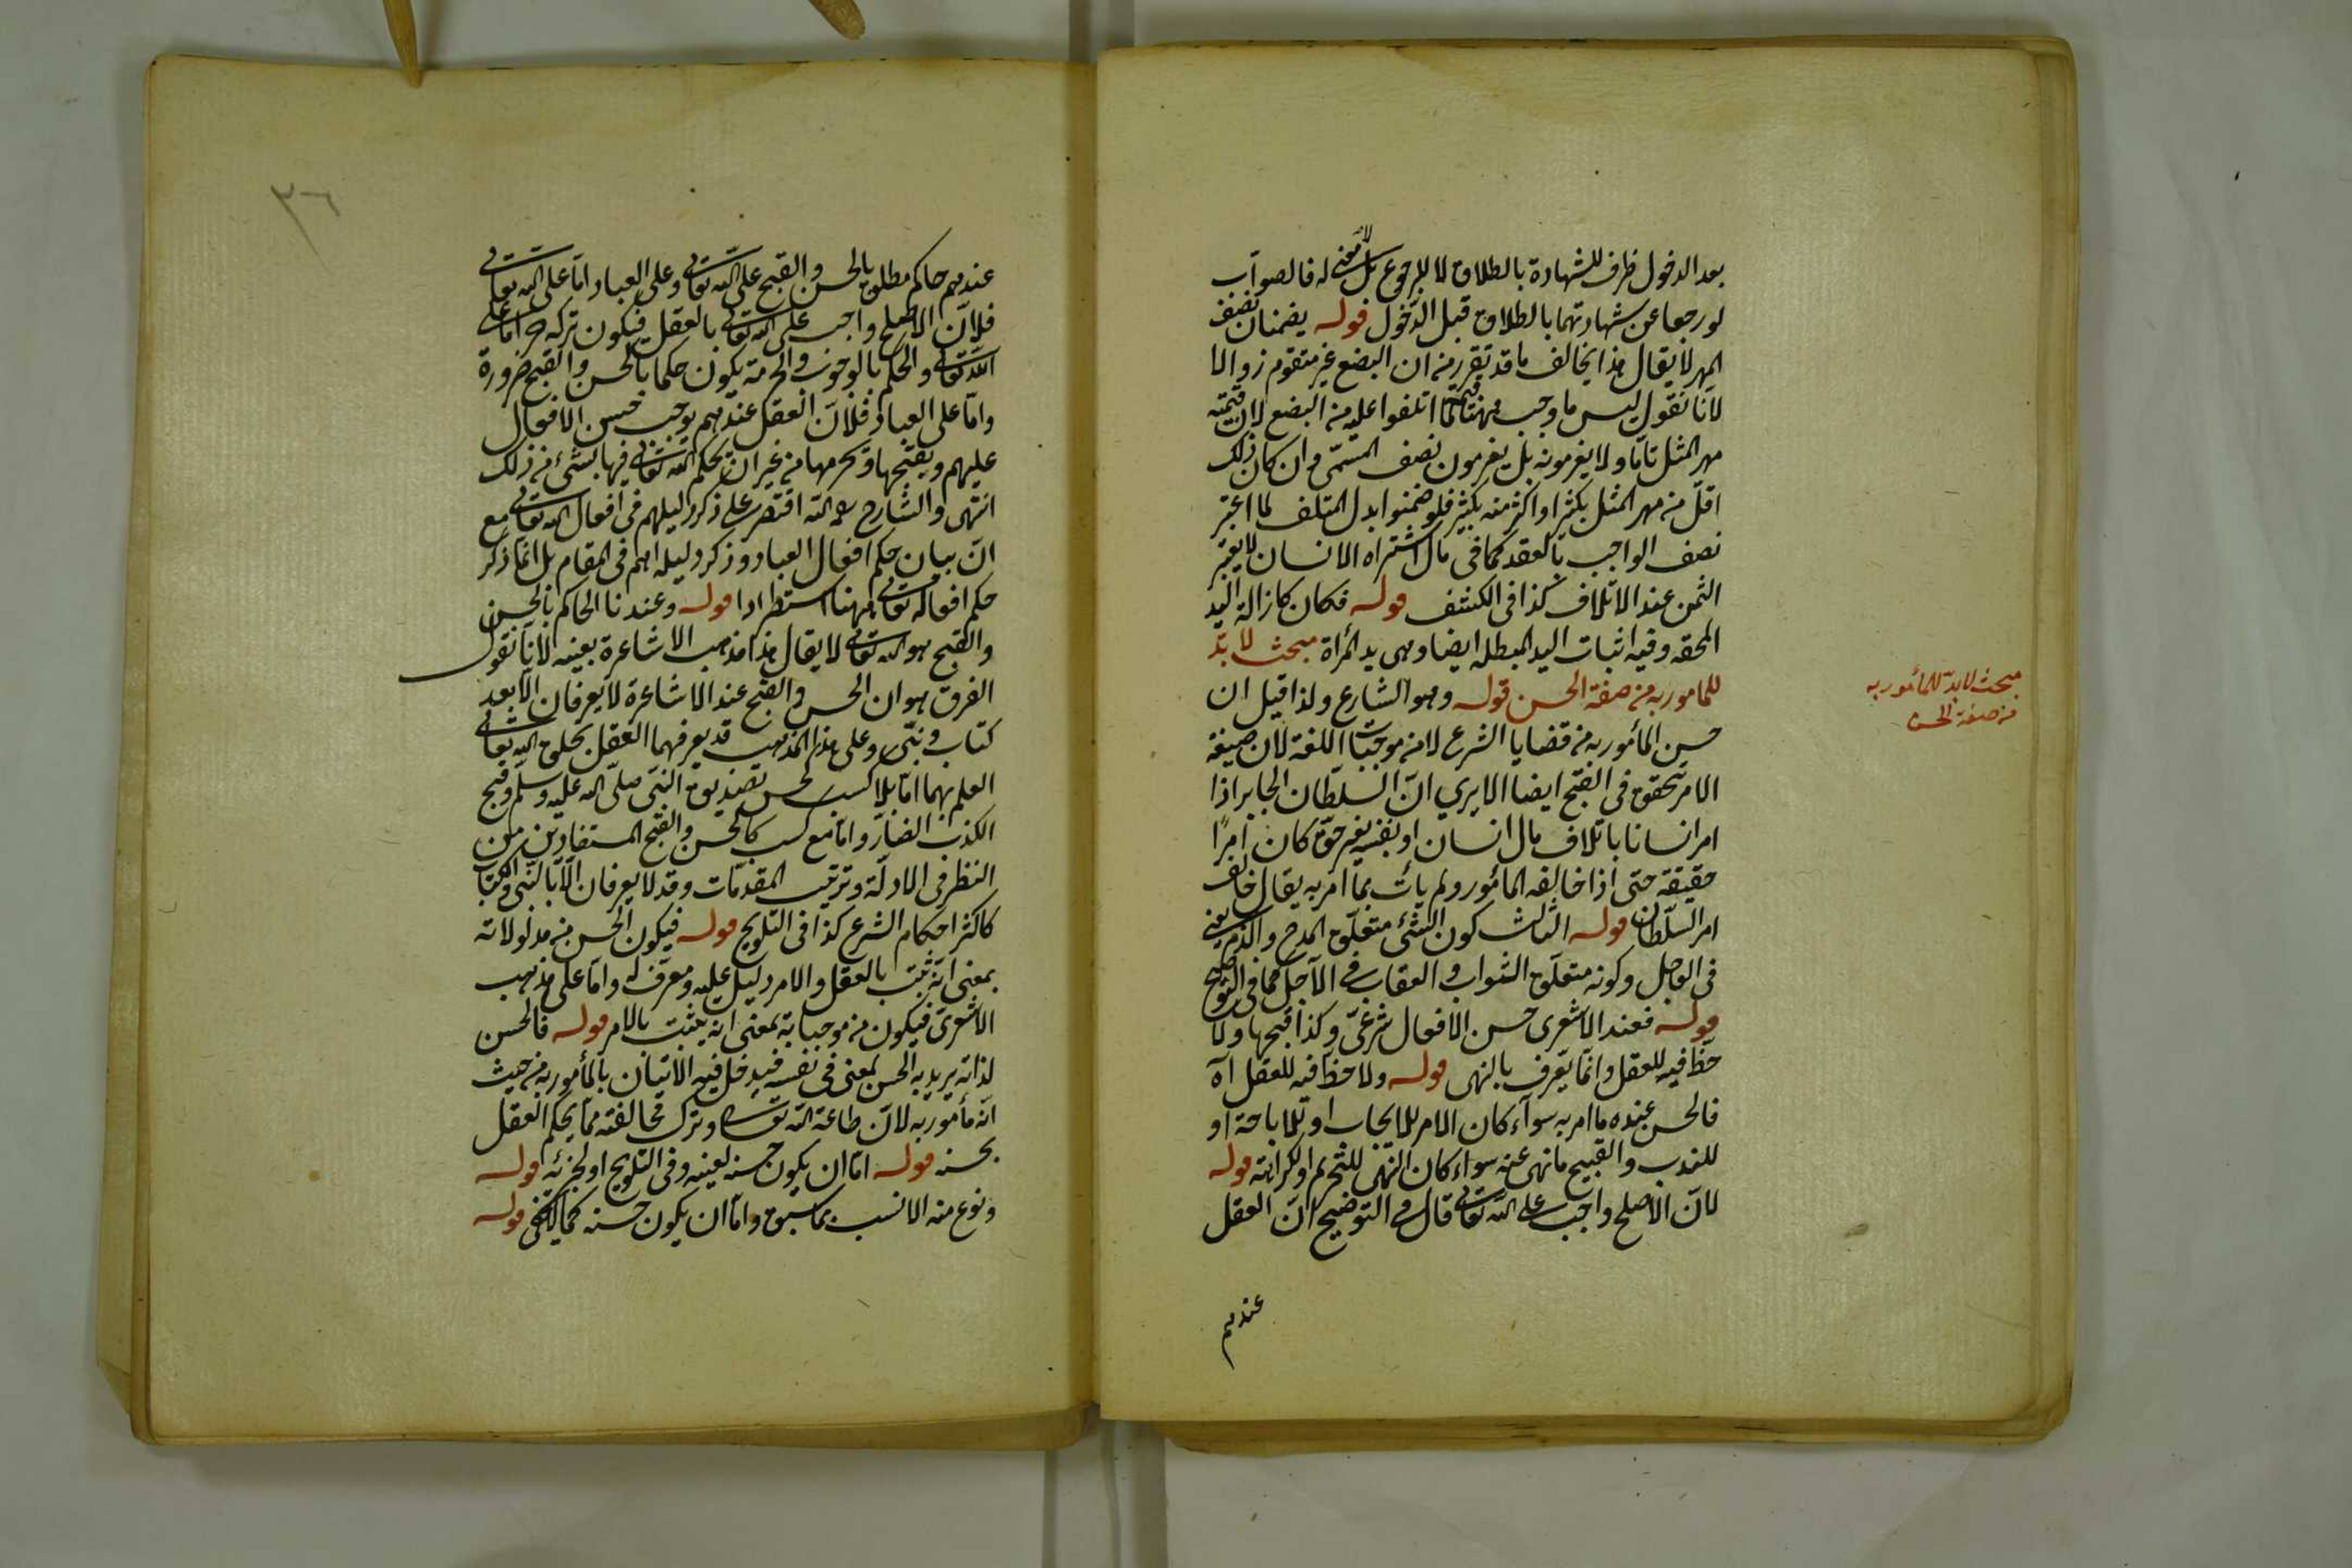 بعد الدخول ظرف للشهادة بالطلاق لا للرجوع بل لا معنى له فالصواب
لو رجعا عن شهادتهما بالطلاق قبل الدخول قوله يضمنان نصف
المهر لا يقال هذا يخالف ما قد تقرر من ان البضع غير متقوم زوالا
لانا نقول ليس ما وجب ههنا قيمة لما اتلفوا عليه من البضع لان قيمته
مهر المثل تاما ولا يغرمونه بل يغرمون نصف المسمى وان كان ذلك
اقل من مهر المثل بكثير او اكثر منه بكثير فلو ضمنوا بدل المتلف لما اعتبر
نصف الواجب بالعقد كما في مال اشتراه الانسان لا يعتبر
الثمن عند الاتلاف كذا في الكشف قوله فكان كازالة اليد
المحقه وفيه اثبات اليد المبطله ايضا وهي يد المرأة مبحث لا بد
للمامور به من صفة الحسن قوله وهو الشارع ولذا قيل ان
حسن المأمور به من قضايا الشرع لا من موجبات اللغة لان صيغة
الامر تتحقق في القبح ايضا الا يري ان السلطان الجاير اذا
امر انسانا باتلاف مال انسان او نفسه بغير حق كان امرًا
حقيقة حتى اذا خالفه المأمور ولم يأت بما امر به يقال خالف
امر السلطان قوله الثالث كون الشئ متعلق المدح والذم يعني
في العاجل وكونه متعلق الثواب والعقاب في الآجل كما في التوضيح
قوله فعند الاشعرى حسن الافعال شرعي وكذا قبحها ولا
حظ فيه للعقل وانما يعرف بالنهى قوله ولا حظ فيه للعقل آه
فالحسن عنده ما امر به سوآء كان الامر للايجاب او للاباحة او
للندب والقبيح ما نهى عنه سواء كان النهى للتحريم او للكراهة قوله
لان الاصلح واجب على الله تعالى قال في التوضيح ان العقل
عندهم
مبحث لا بد للمأمور به
من صفة الحسن
٣٦
عندهم حاكم مطلق بالحسن والقبح على الله تعالى وعلى العباد اما على الله تعالى
فلان الاصلح واجب على الله تعالى بالعقل فيكون تركه حراما على
الله تعالى والحكم بالوجوب والحرمة يكون حكما بالحسن والقبح ضرورة
واما على العباد فلان العقل عندهم يوجب حسن الافعال
عليهم ويقبحها ويحرمها من غير ان يحكم الله تعالى فيها بشئ من ذلك
انتهى والشارح رحمه الله اقتصر على ذكر دليلهم في افعال الله تعالى مع
ان بيان حكم افعال العباد وذكر دليله اهم في المقام بل انما ذكر
حكم افعاله تعالى ههنا استطرادا قوله وعندنا الحاكم بالحسن
والقبح هو الله تعالى لا يقال هذا مذهب الاشاعرة بعينه لانا نقول
الفرق هو ان الحسن والقبح عند الاشاعرة لا يعرفان الا بعد
كتاب ونبي وعلى هذا المذهب قد يعرفهما العقل بخلق الله تعالى
العلم بهما اما بلا كسب كحسن تصديق النبى صلى الله عليه وسلم وقبح
الكذب الضار واما مع كسب كالحسن والقبح المستفادين من
النظر في الادلة وترتيب المقدمات وقد لا يعرفان الا بالنبى والكتاب
كاكثر احكام الشرع كذا في التلويح قوله فيكون الحسن من مدلولاته
بمعنى انه ثبت بالعقل والامر دليل عليه ومعرف له واما على مذهب
الاشعرى فيكون من موجباته بمعنى انه يثبت بالامر قوله فالحسن
لذاته يريد به الحسن لمعنى في نفسه فيدخل فيه الاتيان بالمأمور به من حيث
انه مأمور به لان طاعة الله تعالى وترك مخالفته مما يحكم العقل
بحسنه قوله اما ان يكون حسنه لعينه وفي التلويح او لجزئه قوله
ونوع منه الانسب بما سبق واما ان يكون حسنه كما لا يخفى قوله